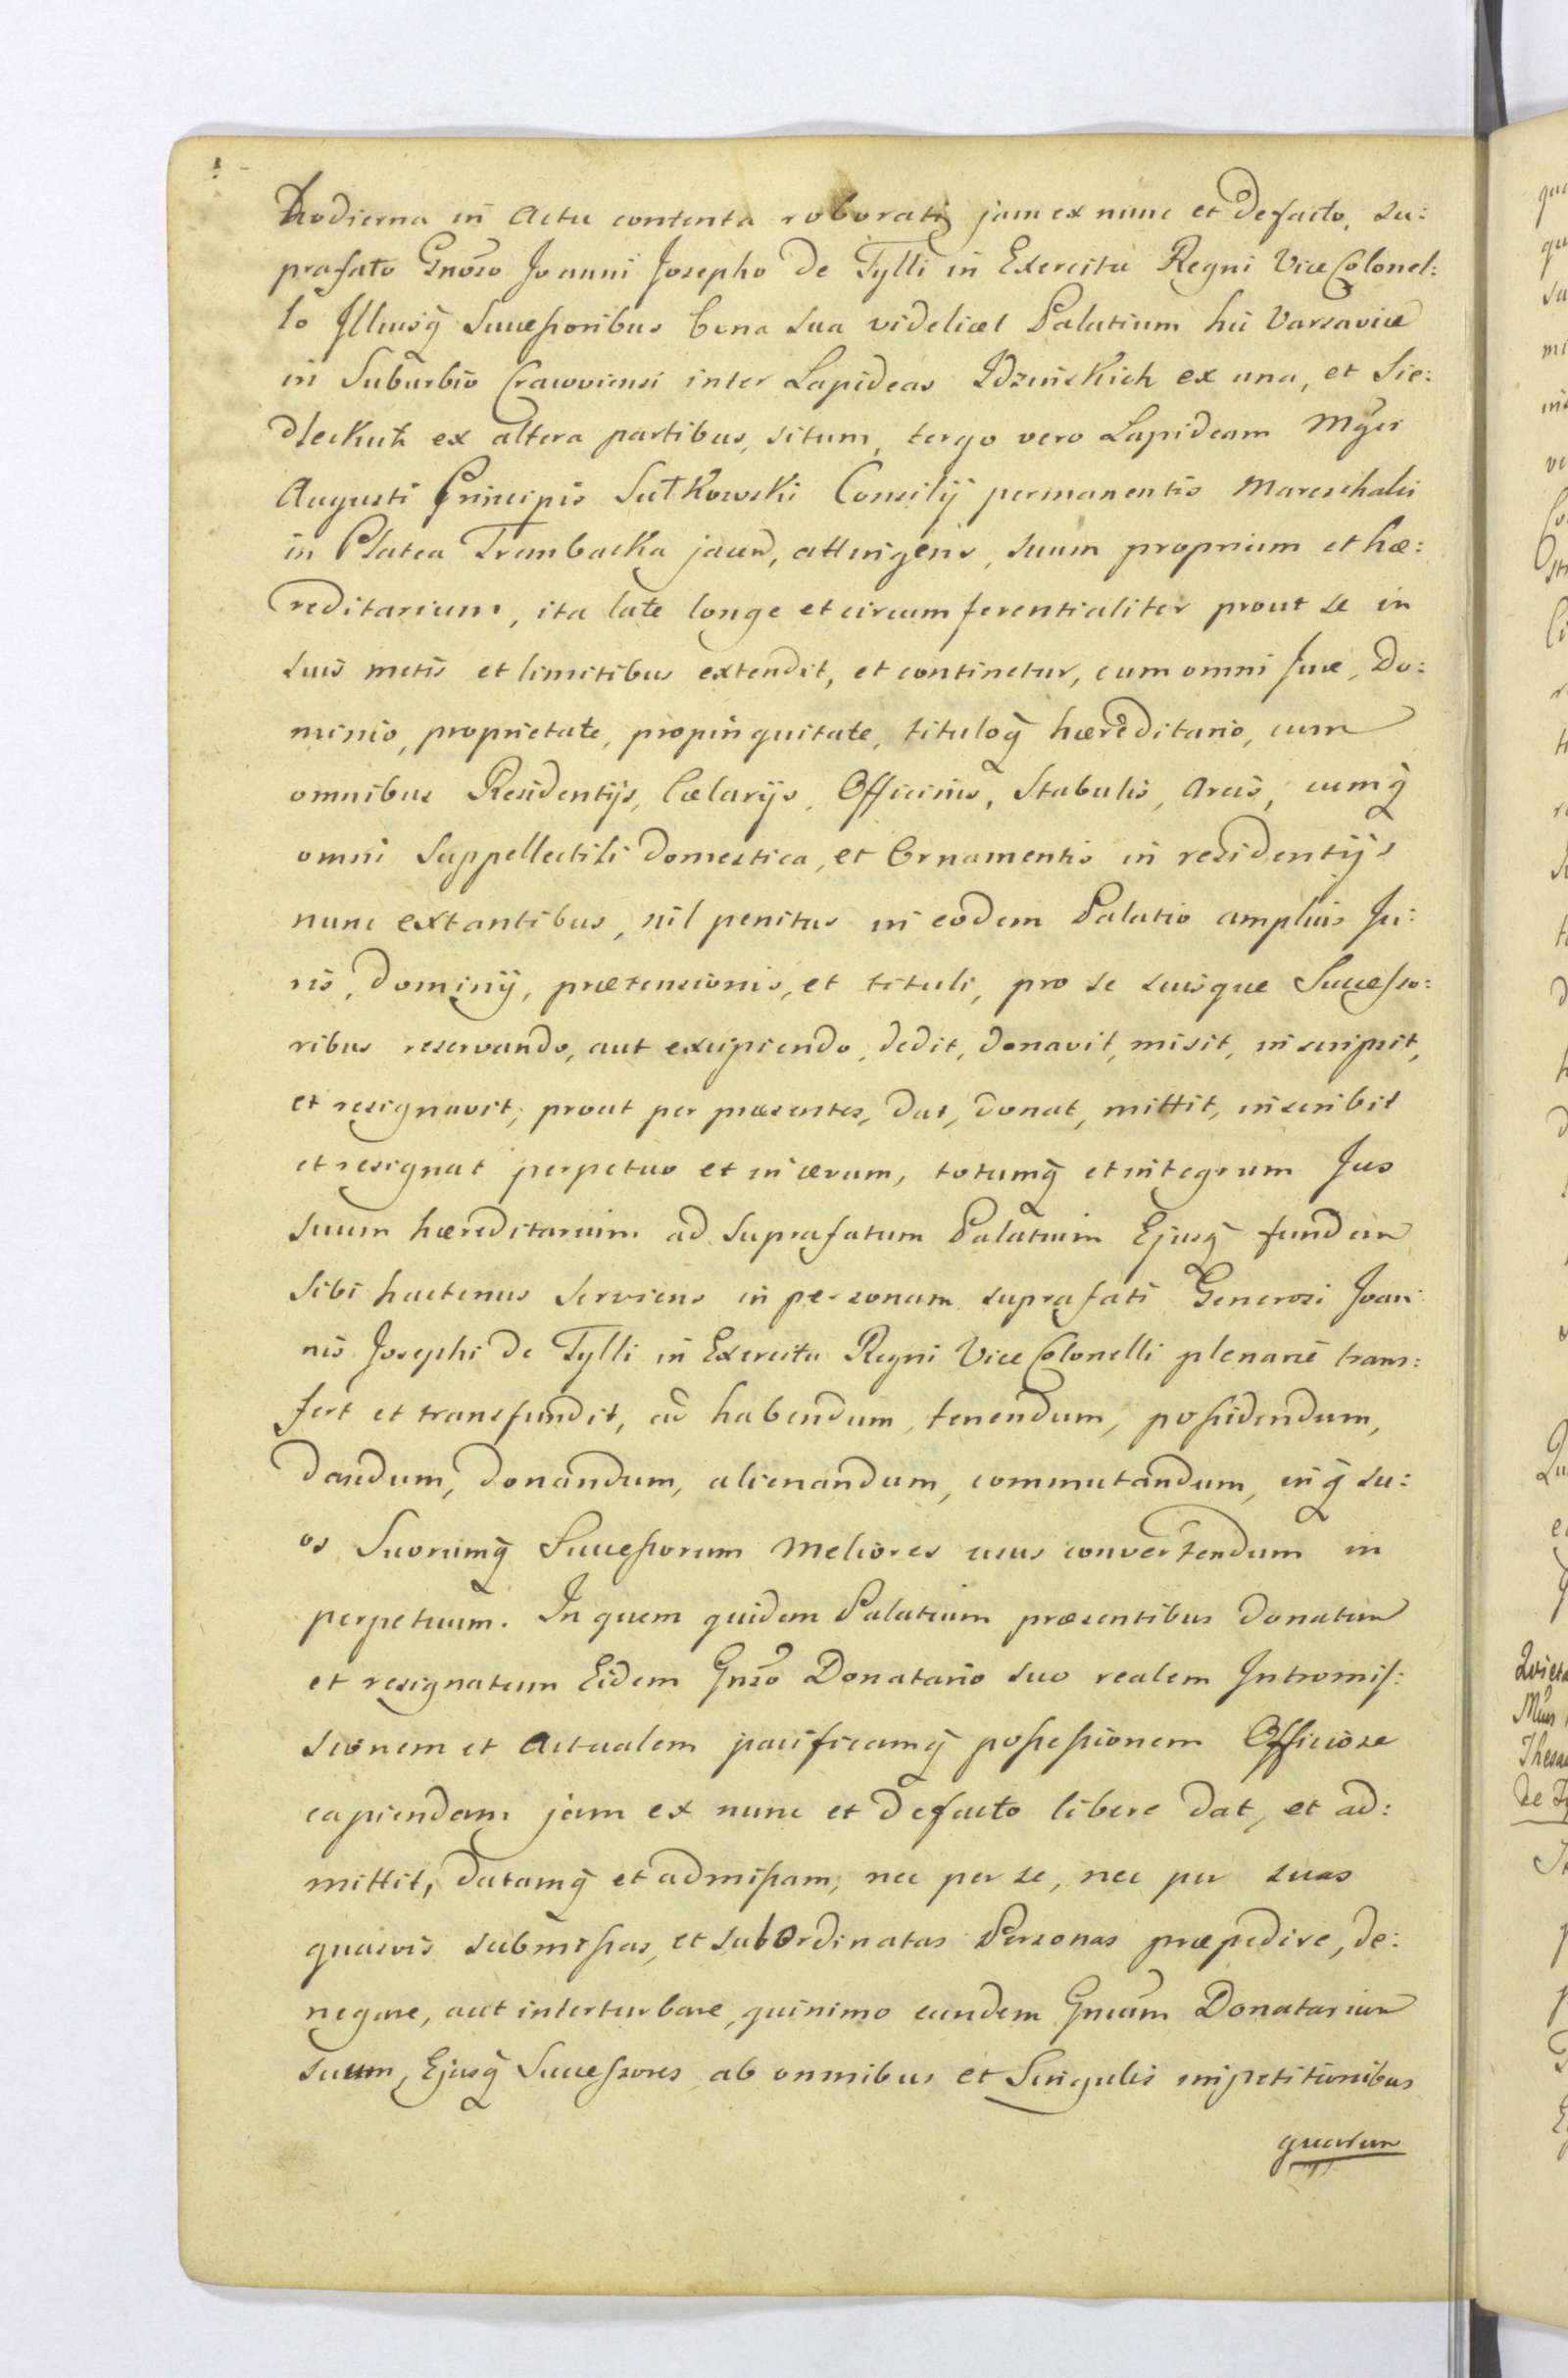 hodierna in Actu contenta roboratis jam ex nunc et defacto, su:
prafato Gnoso Joanni Josepho de Tylli in Exercitu Regni Vice Colonel:
lo Illiusq̃ Successoribus bona sua videlicet Palatium hic Varsaviæ
in Suburbio Cracoviensi inter Lapideas Idzińskich ex una, et Sie:
dleckich ex altera partibus, situm, tergo vero Lapideam
Augusti Principis Sułkowski Consilij permanentis Mareschalci
in Platea Trembacka jacen, attingens, suum proprium et hæ:
reditarium, ita late longe et circumferentialiter prout se in
suis metis et limitibus extendit, et continetur, cum omni Jure, Do:
minio, proprietate, propinquitate, tituloq̃ hæreditario, cum
omnibus Residentijs, Cælarijs, Officinis, Stabulis, Areis, cumq̃
omni Suppellectili domestica, et Ornamentis in residentijs
nunc extantibus, nil penitus in eodem Palatio amplius Ju:
ris, dominij, prætensionis, et tituli, pro se suisque Successo:
ribus reservando, aut excipiendo, dedit, donavit, misit, inscripsit,
et resignavit, prout per præsentes, dat, donat, mittit, inscribit
et resignat perpetuo et in ævum, totumq̃ et integrum Jus
suum hæreditarium ad suprafatum Palatium Ejusq̃ fundum
sibi hactenus serviens in personam suprafati Generosi Joan
nis Josephi de Tylli in Exercitu Regni Vice Colonelli plenarie trans:
fert et transfundit, ad habendum, tenendum, possidendum,
dandum, donandum, alienandum, commutandum, inq̃ su:
os Suorumq̃ Successorum meliores usus convertendum in
perpetuum. In quem quidem Palatium præsentibus donatum
et resignatum Eidem Gnso Donatario suo realem Intromis:
sionem et Actualem pacificamq̃ possessionem Officiose
capiendam jam ex nunc et defacto libere dat, et ad:
mittit, datamq̃ et admissam, nec per se, nec per suas
quasvis submissas, et subOrdinatas Personas præpedire, de:
negare, aut interturbare, quinimo eundem Gnsum Donatarium
suum, Ejusq̃ Successores ab omnibus et Singulis impetitionibus
quarum